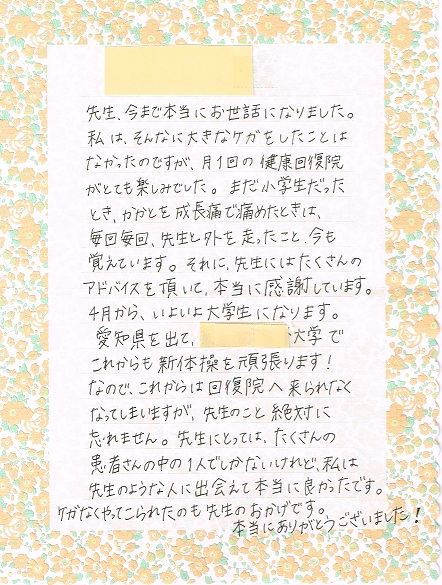 先生、今まで本当にお世話になりました。
私は、そんなに大きなケガをしたことは
なかったのですが、月1回の健康回復院
がとても楽しみでした。まだ小学生だった
とき、かかとを成長痛で痛めたときは、
毎回毎回、先生と外を走ったこと、今も
覚えています。それに、先生にはたくさんの
アドバイスを頂いて、本当に感謝しています。
4月から、いよいよ大学生になります。
愛知県を出て、大学で
これからも新体操を頑張ります!
なので、これからは回復院へ来られなく
なってしまいますが、先生のこと絶対に
忘れません。先生にとっては、たくさんの
患者さんの中の1人でしかないけれど、私は
先生のような人に出会えて本当に良かったです。
ケガなくやってこられたのも先生のおかげです。
本当にありがとうございました!